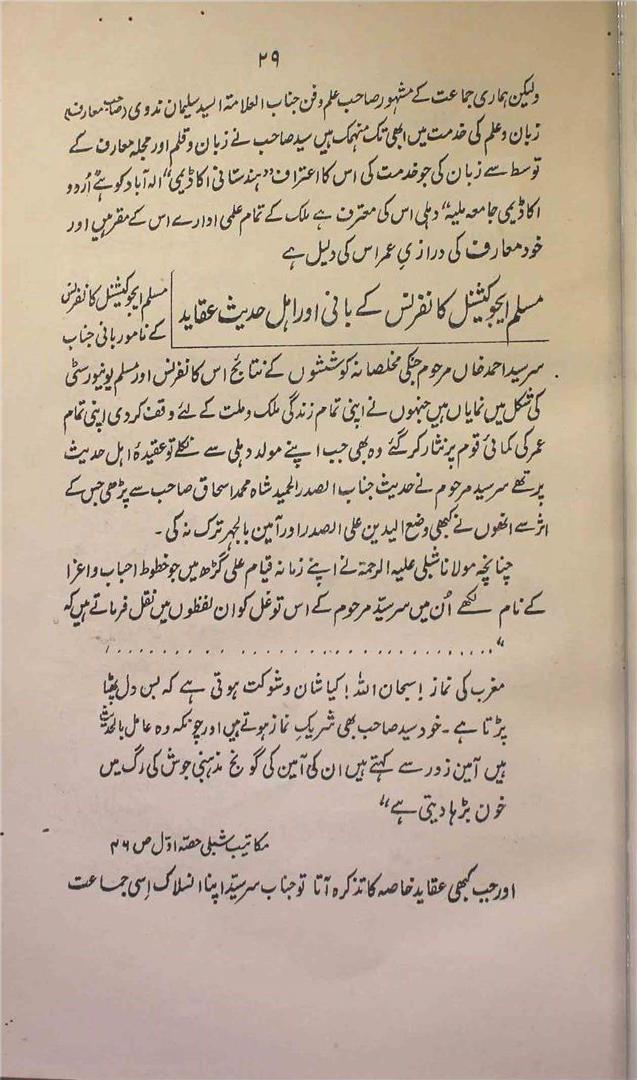 ۲۹
ولیکن ہماری جماعت کے مشہور صاحب علم و فن جناب العلامۃ السید سلیمان ندوی (صاحب معارف)
زبان و علم کی خدمت میں ابھی تک منہمک ہیں سید صاحب نے زبان و قلم اور مجلہ معارف کے
توسط سے زبان کی جو خدمت کی اس کا اعتراف "ہندستانی اکاڈیمی" الہ آباد کو ہے اُردو
اکاڈیمی جامعہ ملیہ" دہلی اس کی معترف ہے ملک کے تمام علمی ادارے اس کے مقر ہیں اور
خود معارف کی درازیِ عمر اس کی دلیل ہے
مسلم ایجوکیشنل کانفرنس کے بانی اور اہل حدیث عقاید
مسلم ایجوکیشنل کانفرنس
کے نامور بانی جناب
سر سید احمد خاں مرحوم جنکی مخلصانہ کوششوں کے نتایج اس کانفرنس اور مسلم یونیورسٹی
کی شکل میں نمایاں ہیں جنہوں نے اپنی تمام زندگی ملک و ملت کے لئے وقف کر دی اپنی تمام
عمر کی کمائی قوم پر نثار کر گئے وہ بھی جب اپنے مولد دہلی سے نکلے تو عقیدۂ اہل حدیث
پر تھے سر سید مرحوم نے حدیث جناب الصدر الحمید شاہ محمد اسحاق صاحب سے پڑھی جس کے
اثر سے انھوں نے کبھی وضع الیدین علی الصدر اور آمین بالجہر ترک نہ کی۔
چنانچہ مولانا شبلی علیہ الرحمۃ نے اپنے زمانہ قیام علی گڑھ میں جو خطوط احباب و اعزا
کے نام لکھے اُن میں سر سیّد مرحوم کے اس توغل کو ان لفظوں میں نقل فرماتے ہیں کہ
"..............................
مغرب کی نماز! سبحان اللہ! کیا شان و شوکت ہوتی ہے کہ بس دل پھٹا
پڑتا ہے۔ خود سید صاحب بھی شریکِ نماز ہوتے ہیں اور چونکہ وہ عامل بالحدیث
ہیں آمین زور سے کہتے ہیں ان کی آمین کی گونج مذہبی جوش کی رگ میں
خون بڑھا دیتی ہے"
مکاتیب شبلی حصّہ اوّل ص ۴۶
اور جب کبھی عقاید خاصہ کا تذکرہ آتا تو جناب سر سیّد اپنا انسلاک اِسی جماعت